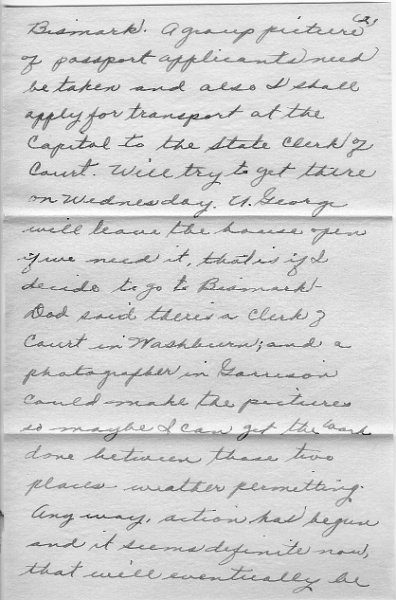 (2)
Bismark. A group picture
of passport applicants need
be taken and also I shall
apply for transport at the
Capitol to the State Clerk of
Court. Will try to get there
on Wednesday. U. George
will leave the house open
if we need it, that is if I
decide to go to Bismark-
Dad said there's a Clerk of
Court in Washburn; and a
photographer in Garrison
could make the pictures
so maybe I can get the work
done between those two
places weather permitting.
Any way, action has begun
and it seems definite now,
that will eventually be